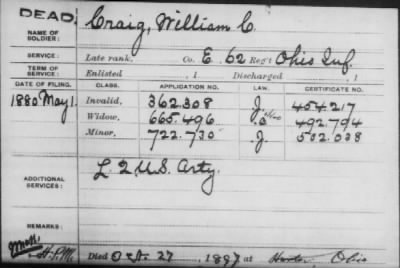 DEAD.
NAME OF SOLDIER: Craig, William C.
SERVICE: Late rank, Co. E. 62 Reg't Ohio Inf.
TERM OF SERVICE: Enlisted , 1 Discharged , 1
DATE OF FILING. CLASS. APPLICATION NO. LAW. CERTIFICATE NO.
1880 May 1. Invalid, 362.308 J 454.217
Widow, 665.496 492.794
Minor, 722.730 J. 502.038
ADDITIONAL SERVICES: L 2 U.S. Arty.
REMARKS:
Died Oct. 27, 1897 at Ohio